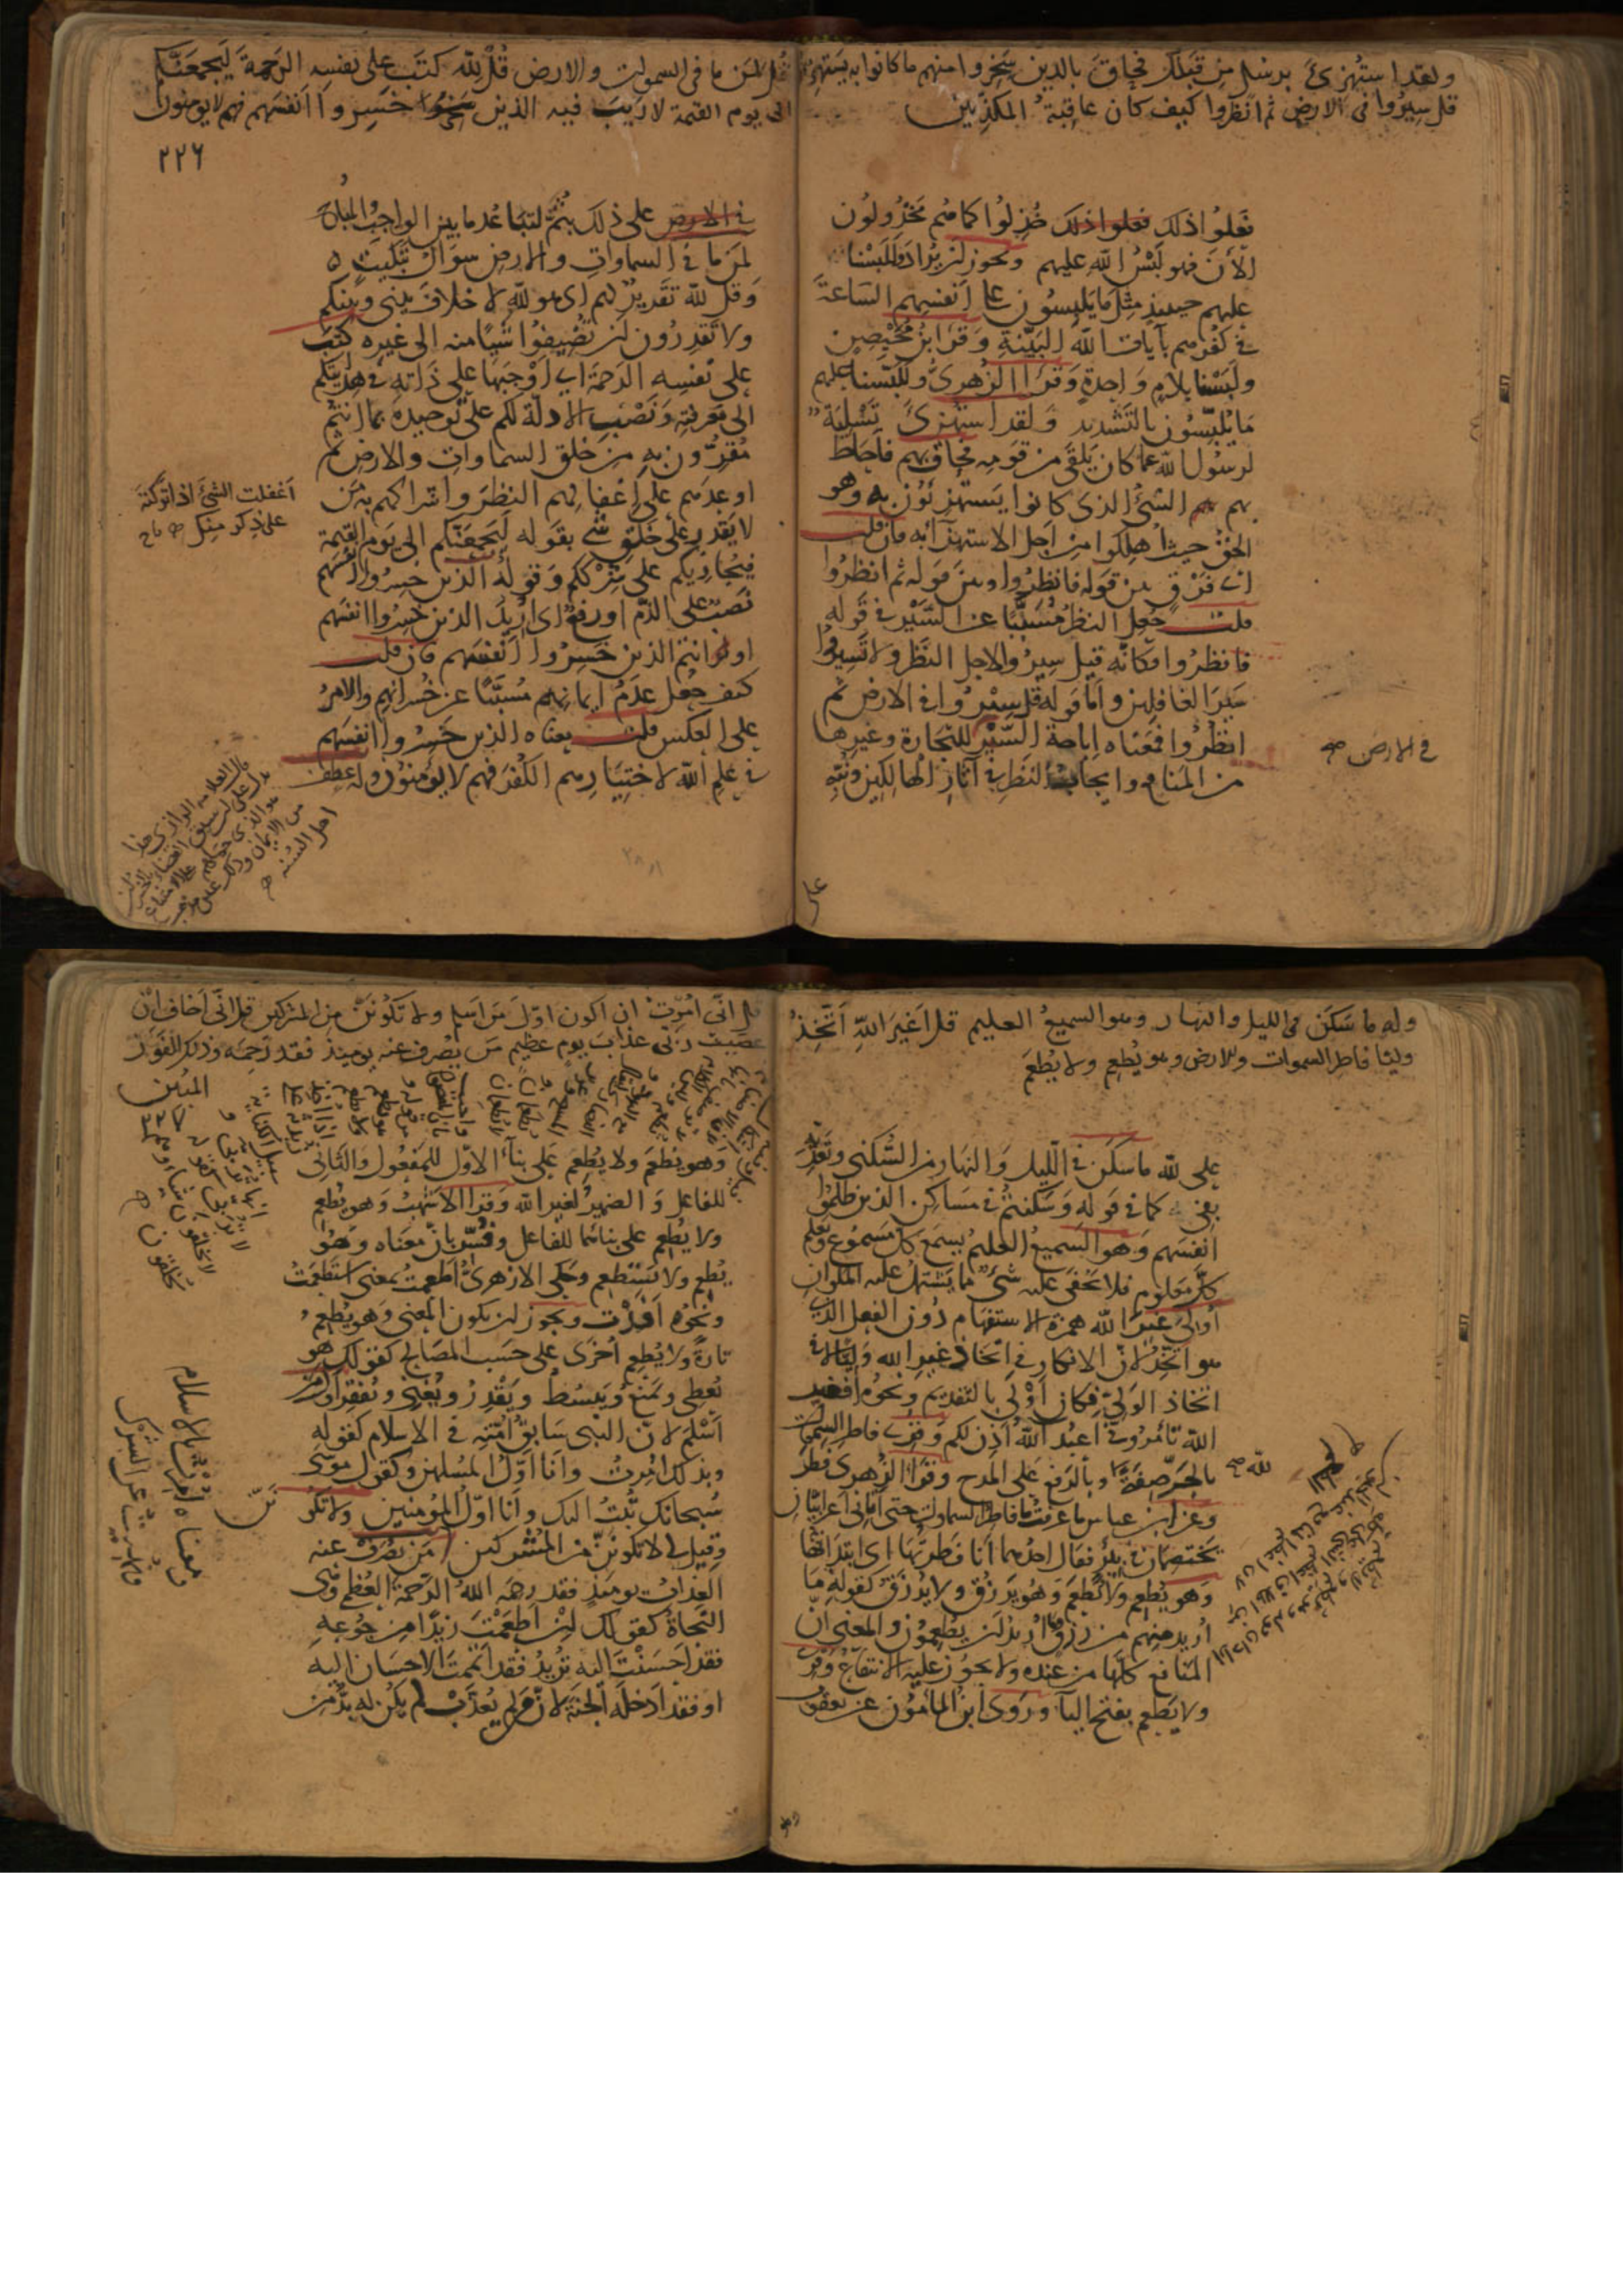 ولقد استهزئ برسل من قبلك فحاق بالذين سخروا منهم ما كانوا به يستهزؤن
قل سيروا فى الارض ثم انظروا كيف كان عاقبة المكذبين
فعلوا ذلك فعلوا ذلك خذلوا كما هم مخذولون
الآن فهو لبس الله عليهم ويجوز لن يراد وللبسنا
عليهم حينئذ مثل ما يلبسون على انفسهم الساعة
فى كفرهم بآيات الله البينة وقرا ابن محيصن
ولبسنا بلام واحدة وقرا الزهرى وللبسنا عليهم
ما يلبسون بالتشديد ولقد استهزئ تسلية
لرسول الله عما كان يلقى من قومه فحاق بهم فاحاط
بهم الشئ الذى كانوا يستهزئون به وهو
الحق حيث اهلكوا من اجل الاستهزآء به فان قلت
اى فرق بين قوله فانظروا وبين قوله ثم انظروا
قلت جعل النظر مسببا عن السير فى قوله
فانظروا فكانه قيل سيروا لاجل النظر ولا تسيروا
سير الغافلين واما قوله قل سيروا فى الارض ثم
انظروا فمعناه اباحة السير للتجارة وغيرها
من المنافع وايجاب النظر فى آثار الهالكين ونبه
فى الارض صح
على
قل لمن ما فى السموات والارض قل لله كتب على نفسه الرحمة ليجمعنكم
الى يوم القيمة لا ريب فيه الذين خسروا انفسهم فهم لا يومنون
٢٢٦
فى الارض على ذلك بثم لتباعد ما بين الواجب والمباح
لمن ما فى السماوات والارض سؤال تبكيت
وقل لله تقرير لهم اى هو لله لا خلاف بينى وبينكم
ولا تقدرون لن تضيفوا شيا منه الى غيره كتب
على نفسه الرحمة اى اوجبها على ذاته فى هدايتكم
الى معرفته ونصب الادلة لكم على توحيده بما انتم
مقرون به من خلق السماوات والارض ثم
اوعدهم على اغفالهم النظر واشراكهم به من
لا يقدر على خلق شى بقوله ليجمعنكم الى يوم القيمة
فيجازيكم على شرككم وقوله الذين خسروا انفسهم
نصب على الذم او رفع اى اريد الذين خسروا انفسهم
او انتم الذين خسروا انفسهم فان قلت
كيف جعل عدم ايمانهم مسببا عن خسرانهم والامر
على العكس قلت معناه الذين خسروا انفسهم
فى علم الله لاختيارهم الكفر فهم لا يؤمنون وله عطف
اغفلت الشئ اذا تركته
على ذكر منك
ولاه ما سكن فى الليل والنهار وهو السميع العليم قل اغير الله اتخذ
وليا فاطر السموات والارض وهو يطعم ولا يطعم
على لله ما سكن فى الليل والنهار من السكنى وتعديه
بفى كما فى قوله وسكنتم فى مساكن الذين ظلموا
انفسهم وهو السميع العليم يسمع كل مسموع ويعلم
كل معلوم فلا يخفى عليه شئ مما يشتمل عليه الملوان
أولى غير الله همزة الاستفهام دون الفعل الذى
هو اتخذ لان الانكار فى اتخاذ غير الله وليا لا فى
اتخاذ الولى فكان اولى بالتقديم ونحوه افغير
الله تأمرونى اعبد آلله اذن لكم وقرئ فاطر السموات
بالجر صفة وبالرفع على المدح وقرا الزهرى فطر
وعن ابن عباس ما عرفت ما فاطر السماوات حتى اتانى اعرابيان
يختصمان فى بئر فقال احدهما انا فطرتها اى ابتداتها
وهو يطعم ولا يطعم وهو يرزق ولا يرزق كقوله ما
اريد منهم من رزق وما اريد لن يطعمون والمعنى ان
المنافع كلها من عنده ولا يجوز عليه الانتفاع وقرئ
ولا يطعم بفتح اليا وروى ابن المأمون عن يعقوب
لله صح
وهو
قل انى امرت ان اكون اول من اسلم ولا تكونن من المشركين قل انى اخاف ان
عصيت ربى عذاب يوم عظيم من يصرف عنه يومئذ فقد رحمه وذلك الفوز
المبين
وهو يطعم ولا يطعم على بنآء الاول للمفعول والثانى
للفاعل والضمير لغير الله وقرا الاشهب وهو يطعم
ولا يطعم على بنائهما للفاعل وفسر بان معناه وهو
يطعم ولا يستطعم وحكى الازهرى اطعمت بمعنى استطعمت
ونحوه افدت ويجوز لن يكون المعنى وهو يطعم
تارة ولا يطعم اخرى على حسب المصالح كقولك هو
يعطى ويمنع ويبسط ويقدر ويغنى ويفقر اول من
اسلم لان النبى سابق امته فى الاسلام كقوله
وبذلك امرت وانا اول المسلمين وكقول موسى
سبحانك تبت اليك وانا اول المؤمنين ولا تكو
نن
وقيل لى لا تكونن من المشركين من يصرف عنه
العذاب يومئذ فقد رحمه الله الرحمة العظمى وهى
النجاة كقولك لئن اطعمت زيدا من جوعه
فقد احسنت اليه تريد فقد اتممت الاحسان اليه
او فقد ادخله الجنة لان من لم يعذب لم يكن له بد من
ومعناه امرت بالاسلام
ونهيت عن الشرك